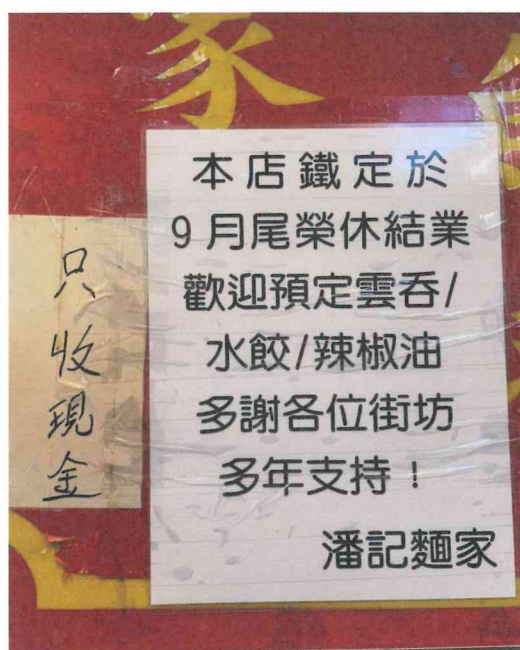 家
本店鐵定於
9月尾榮休結業
歡迎預定雲吞/
水餃/辣椒油
多謝各位街坊
多年支持！
潘記麵家
只收現金